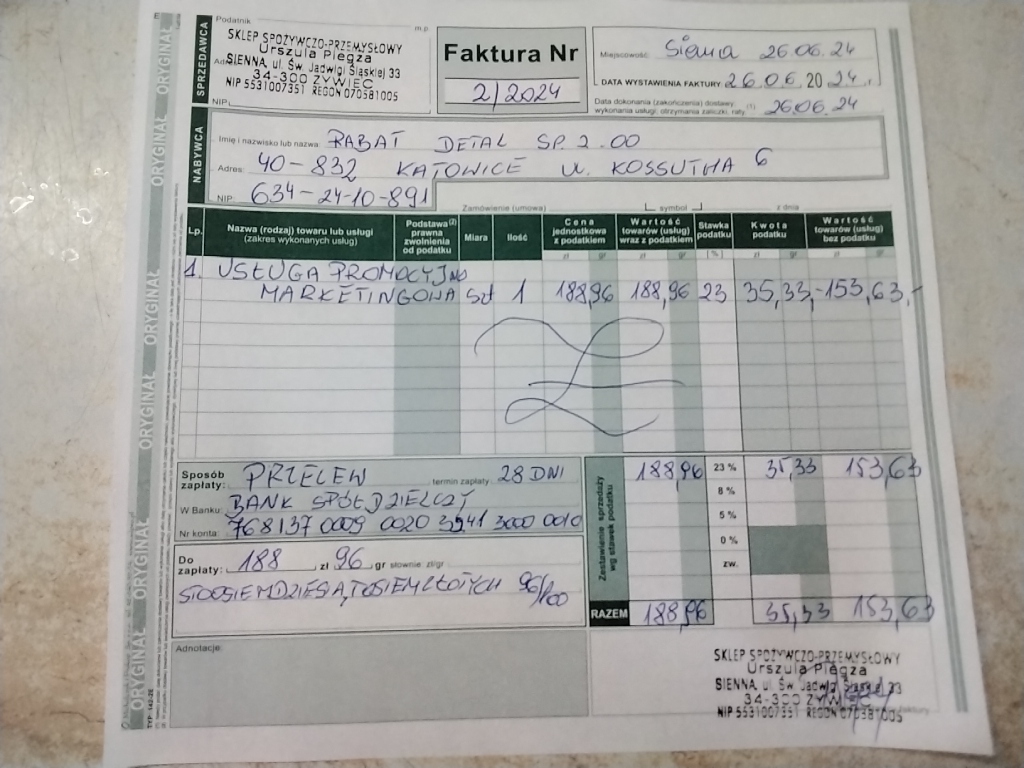 E
ORYGINAŁ ORYGINAŁ ORYGINAŁ ORYGINAŁ ORYGINAŁ ORYGINAŁ ORYGINAŁ
TYP: 142-2E
SPRZEDAWCA
Podatnik m.p.
SKLEP SPOŻYWCZO-PRZEMYSŁOWY
Urszula Piegza
SIENNA, ul. Św. Jadwigi Śląskiej 33
34-300 ŻYWIEC
NIP 5531007351 REGON 070581005
NIP:
Faktura Nr
2/2024
Miejscowość: Sienna 26.06.24
DATA WYSTAWIENIA FAKTURY 26.06.2024r.
Data dokonania (zakończenia) dostawy, (1)
wykonania usługi; otrzymania zaliczki, raty: 26.06.24
NABYWCA
Imię i nazwisko lub nazwa: RABAT DETAL SP. Z. OO
Adres: 40-832 KATOWICE ul. KOSSUTHA 6
NIP: 634-24-10-891
Zamówienie (umowa) symbol z dnia
Lp. Nazwa (rodzaj) towaru lub usługi (zakres wykonanych usług) Podstawa(2) prawna zwolnienia od podatku Miara Ilość Cena jednostkowa z podatkiem Wartość towarów (usług) wraz z podatkiem Stawka podatku Kwota podatku Wartość towarów (usług) bez podatku
zł gr zł gr [%] zł gr zł gr
1. USŁUGA PROMOCYJNO
MARKETINGOWA szt 1 188,96 188,96 23 35,33,- 153,63,-
Sposób zapłaty: PRZELEW termin zapłaty: 28 DNI
W Banku: BANK SPÓŁDZIELCZY
Nr konta: 768137 0009 0020 3941 3000 0010
Do zapłaty: 188 zł 96 gr słownie: zł/gr
STOOSIEMDZIESIĄTOSIEMZŁOTYCH 96/100
Zestawienie sprzedaży wg stawek podatku
188,96 23 % 35,33 153,63
8 %
5 %
0 %
zw.
RAZEM 188,96 35,33 153,63
Adnotacje:
SKLEP SPOŻYWCZO-PRZEMYSŁOWY
Urszula Piegza
SIENNA, ul. Św. Jadwigi Śląskiej 33
34-300 ŻYWIEC
NIP 5531007351 REGON 070581005